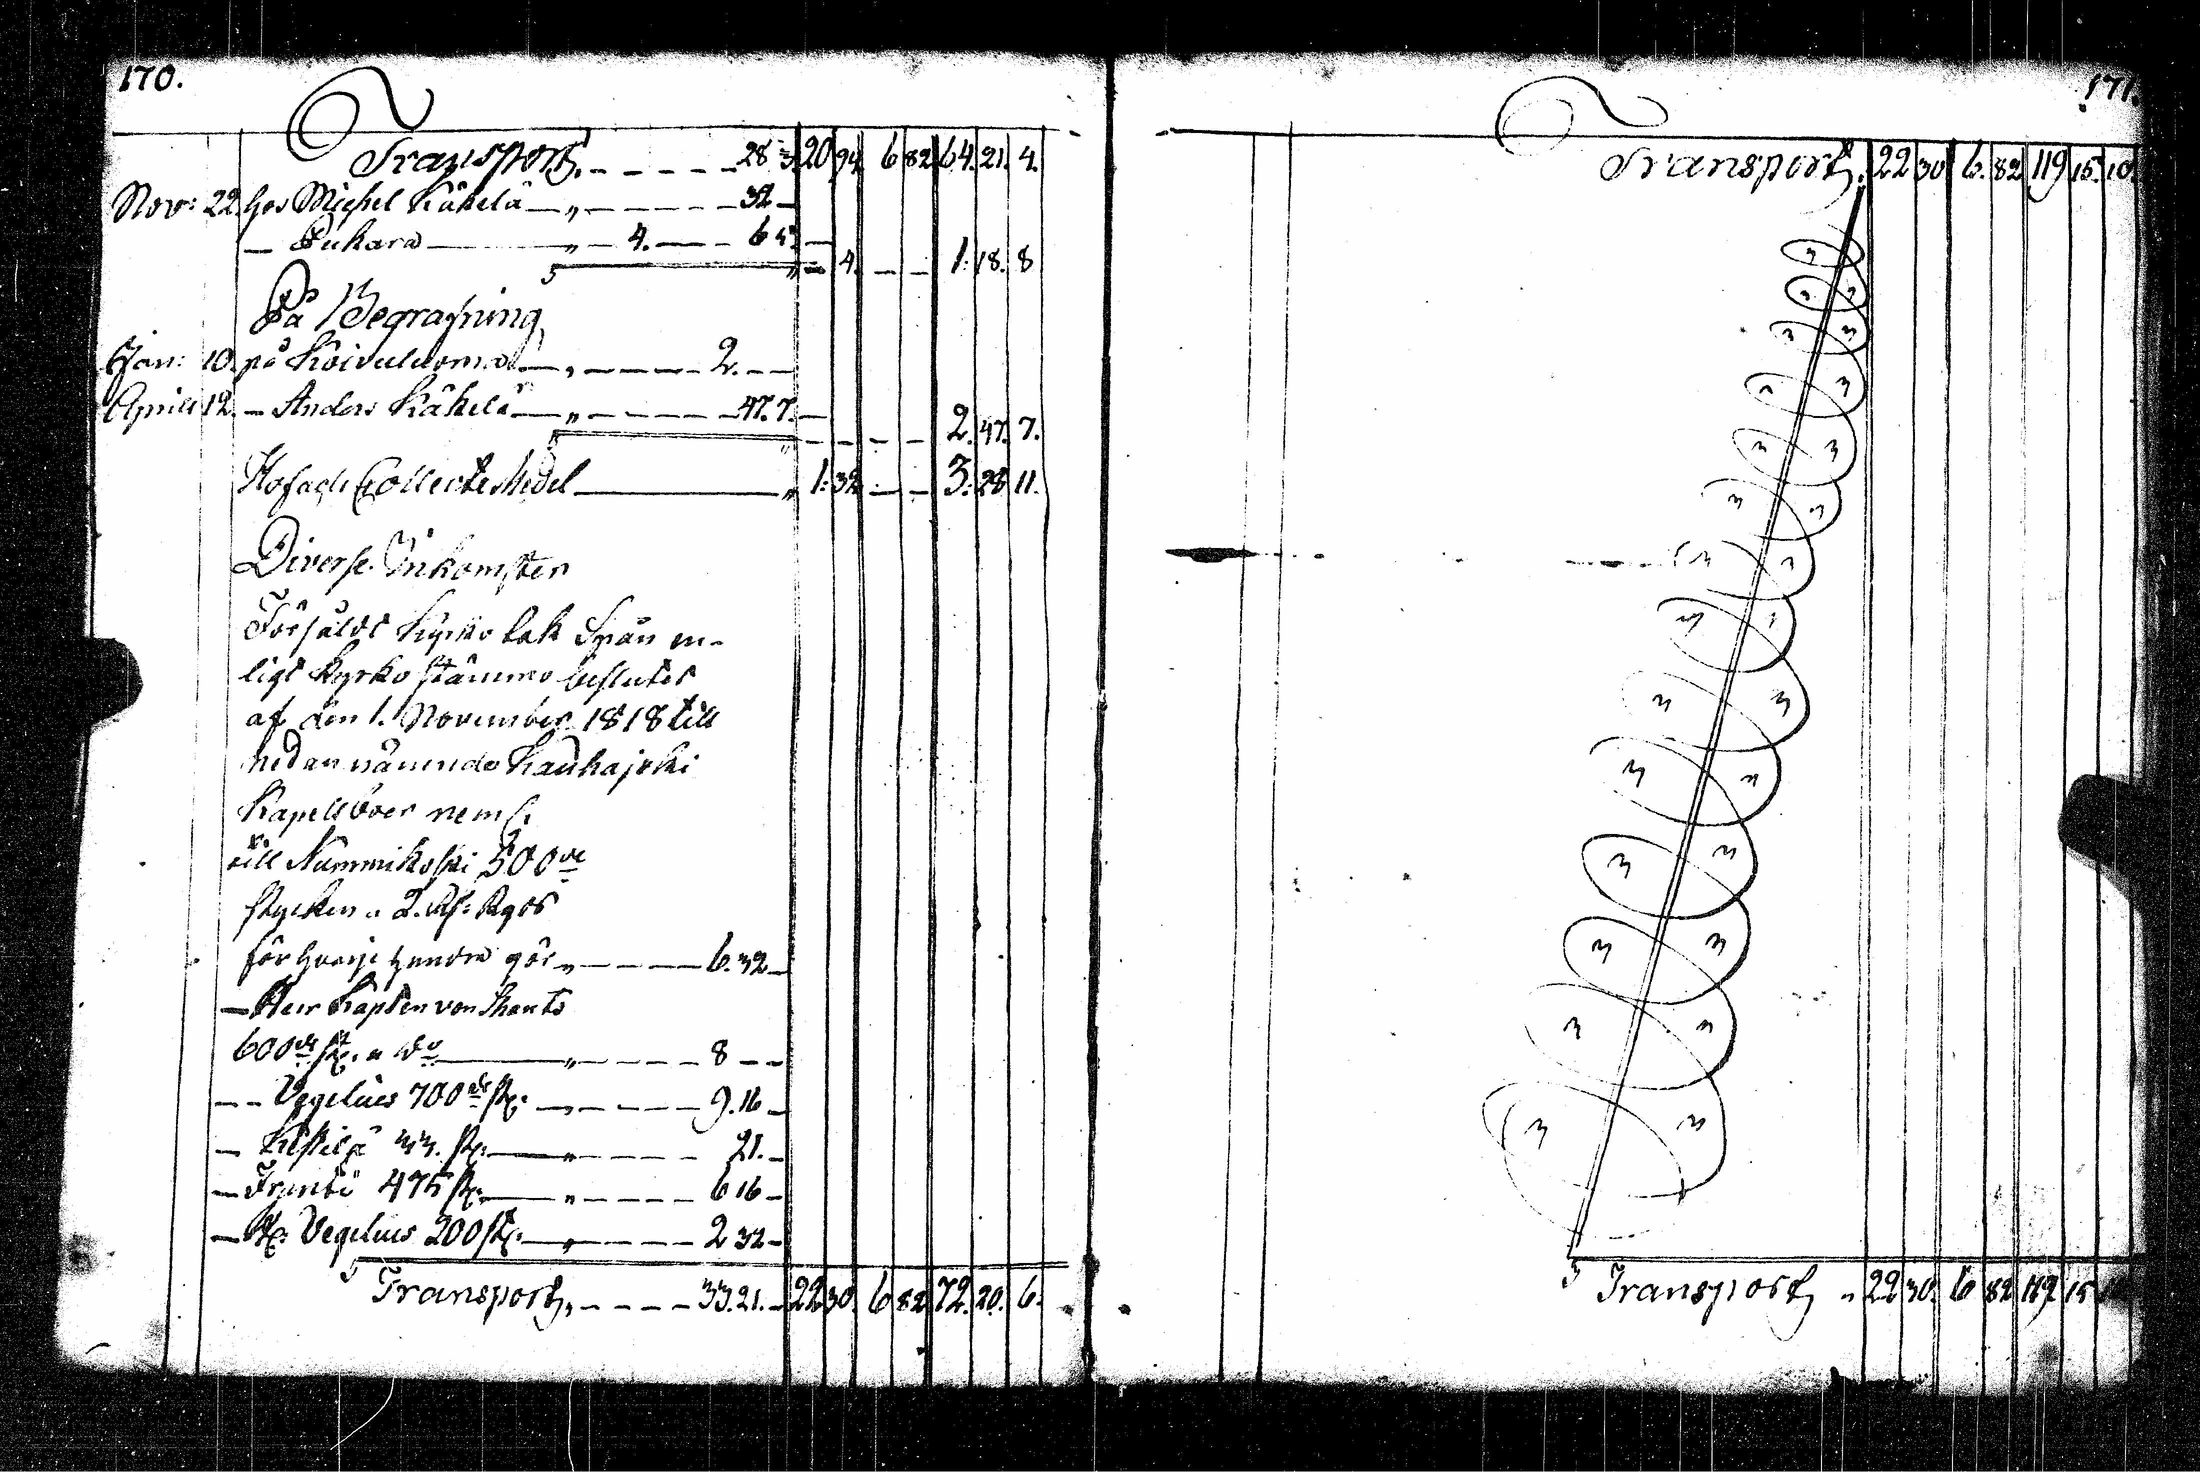 170.
Transport, 28 3 20 94 6 82 64. 21. 4.
Nov: 22 hos Michel Käkelä „ 32
— Pukara „ 4. 6 5 4. 1. 18. 8
På Begrafning
Jan: 10. på Koivuluoma „ 2.
Aprill 12. — Anders Käkelä „ 47. 7. 2. 47. 7.
Collecte Medel „ 1. 32 3. 28 11.
Diverse Inkomster
Försåldt Kyrko tak Spån en-
ligt Kyrko stämmo beslutet
af den 1. November 1818 till
nedannämnde Kauhajoki
Kapellboer neml:
till Nummikoski 500de
stycken a 2. Rgs
för hvarje hundra gör „ 6. 32
— Herr Kapten von
600de st. a do „ 8
— — Vegelius 700de st. „ 9. 16
— Keskilä 33. st. „ 21.
— Franti 475 st. „ 6 16
— Vegelius 200 st. „ 2 32
Transport, 33. 21. 22 30. 6 82 72. 20. 6.
171.
Transport, 22 30 6. 82 119 15. 10.
Transport „ 22 30. 6 82 119 15